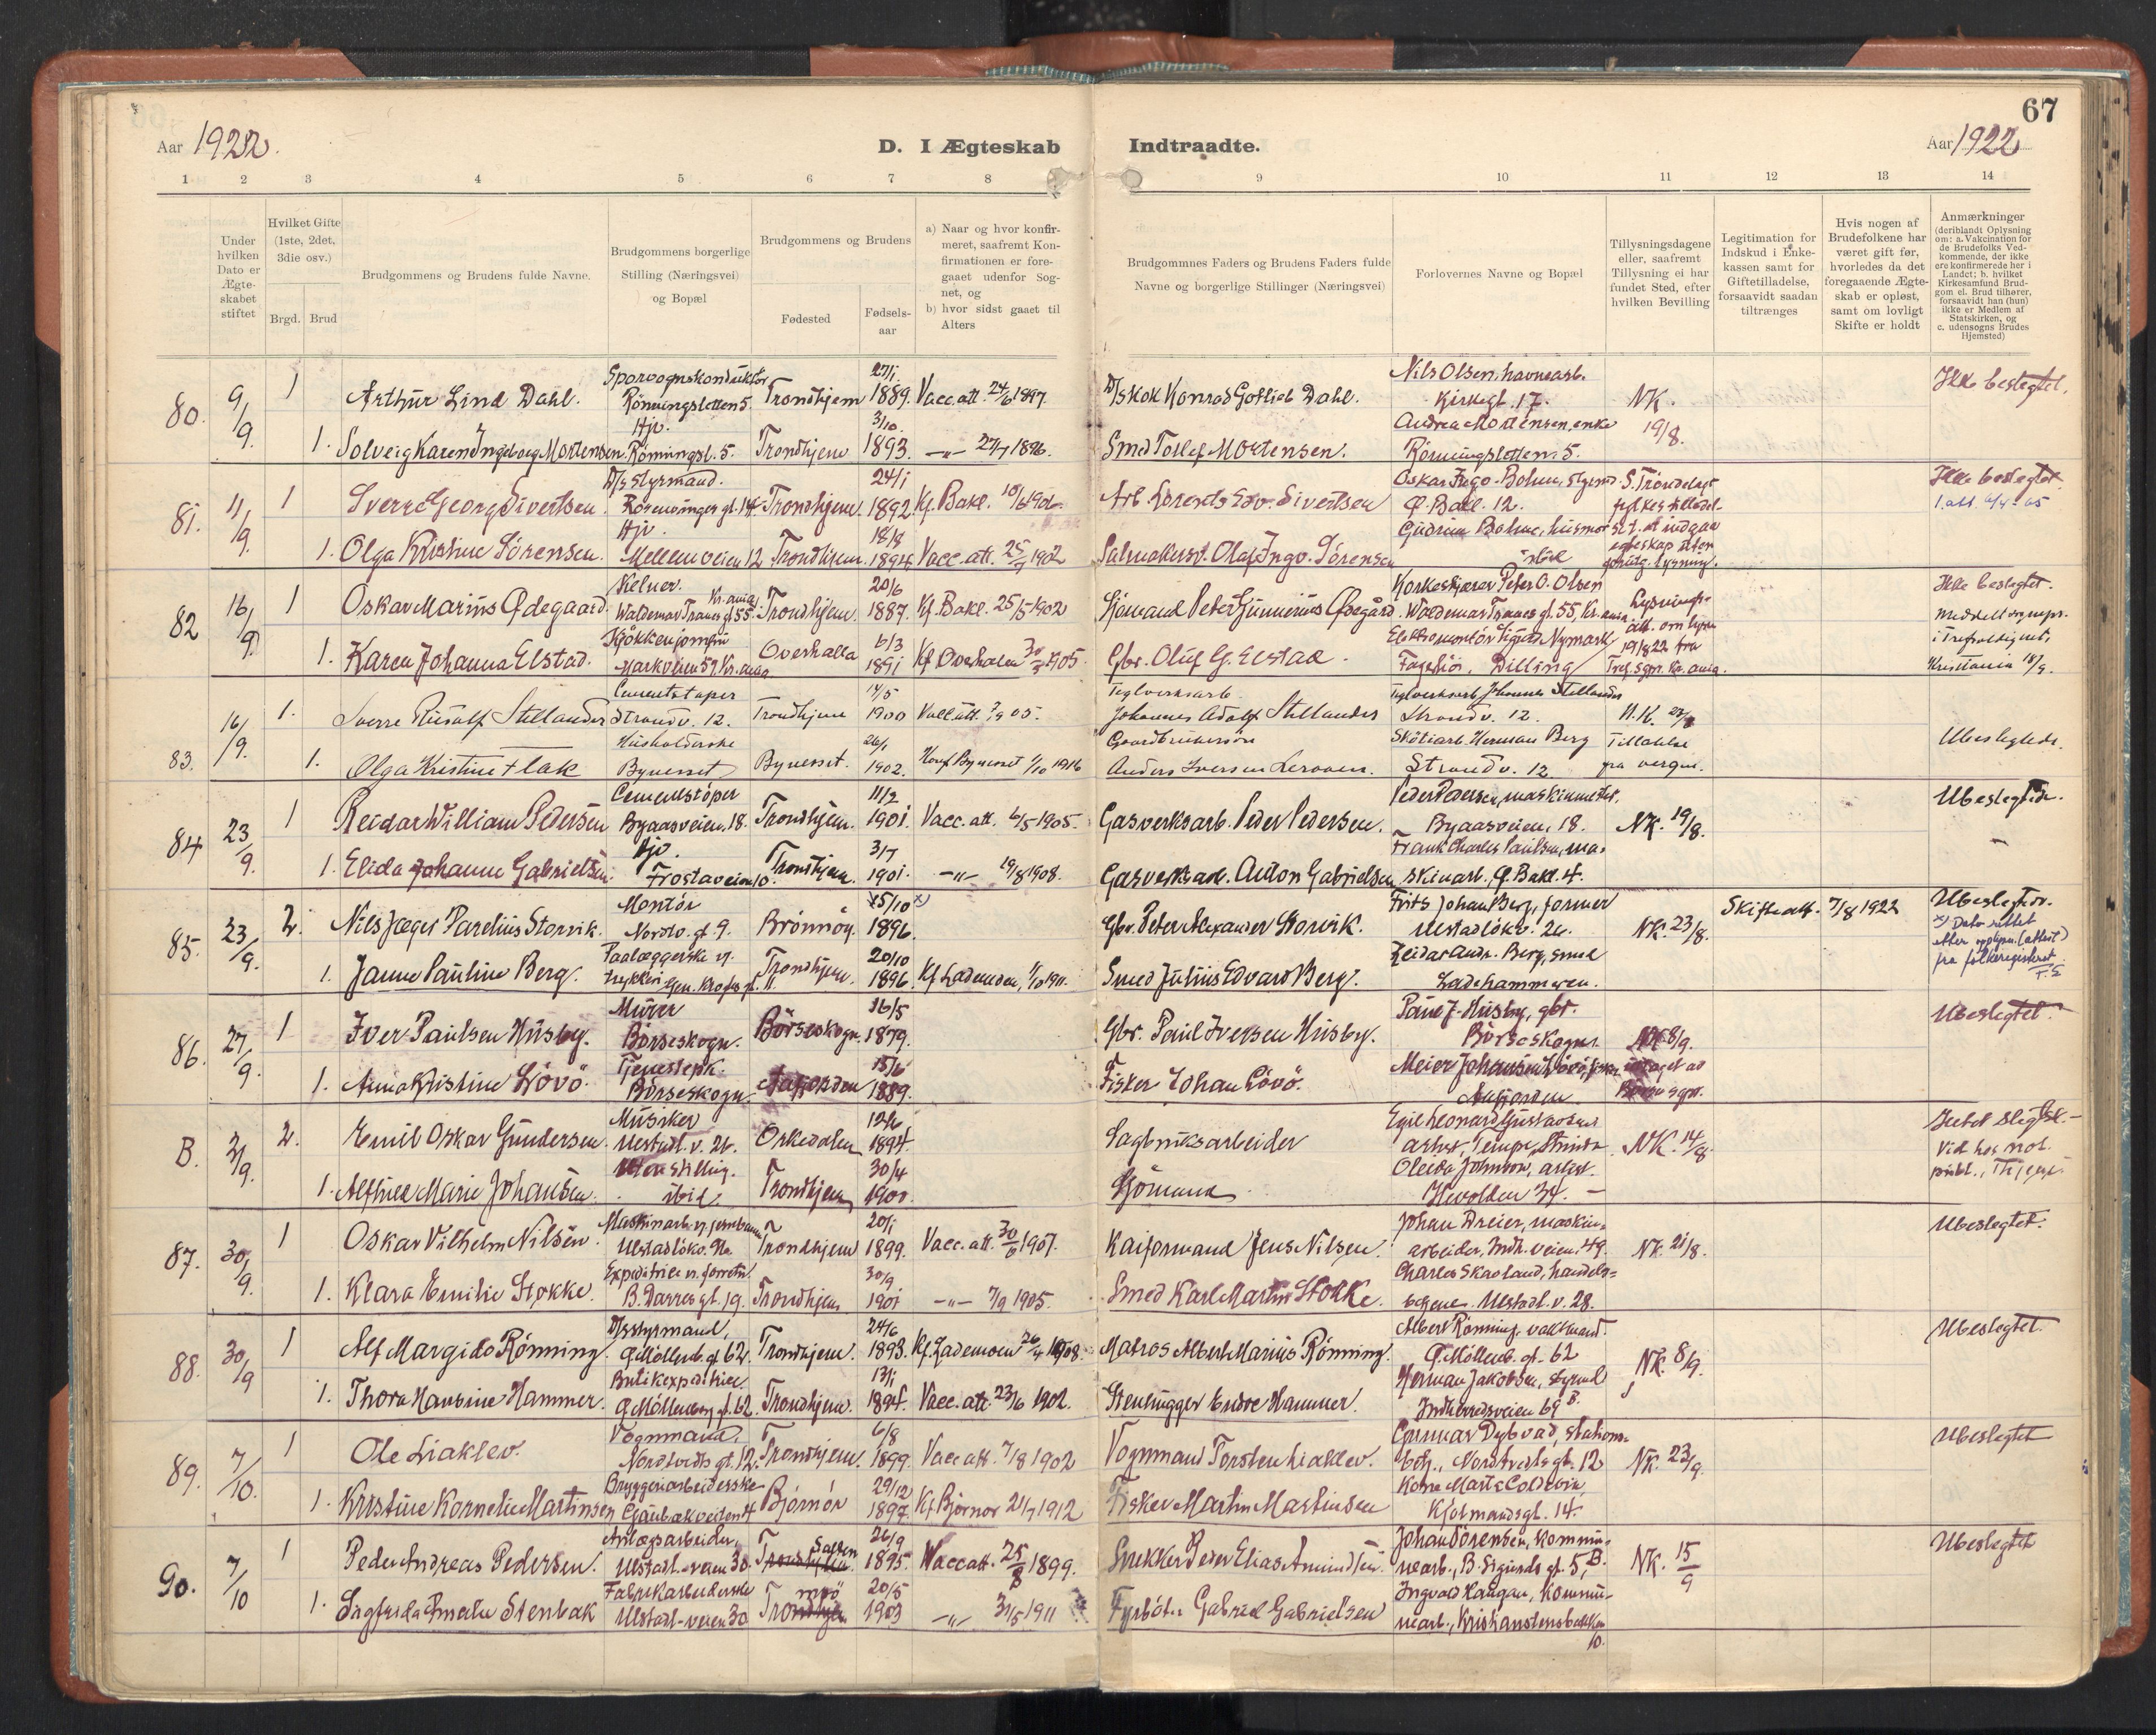 67
Aar 1922.
D. I Ægteskab
Indtraadte.
Aar 1922
1 2 3 4 5 6 7 8 9 10 11 12 13 14
Under hvilken Dato er Ægte-skabet stiftet
Hvilket Gifte (1ste, 2det, 3die osv.)
Brgd. Brud
Brudgommens og Brudens fulde Navne.
Brudgommens borgerlige
Stilling (Næringsvei)
og Bopæl
Brudgommens og Brudens
Fødested
Fødsels-aar
a) Naar og hvor konfir-
meret, saafremt Kon-
firmationen er fore-
gaaet udenfor Sog-
net, og
b) hvor sidst gaaet til
Alters
Brudgommnes Faders og Brudens Faders fulde
Navne og borgerlige Stillinger (Næringsvei)
Forlovernes Navne og Bopæl
Tillysningsdagene
eller, saafremt
Tillysning ei har
fundet Sted, efter
hvilken Bevilling
Legitimation for
Indskud i Enke-
kassen samt for
Giftetilladelse,
forsaavidt saadan
tiltrænges
Hvis nogen af
Brudefolkene har
været gift før,
hvorledes da det
foregaaende Ægte-
skab er opløst,
samt om lovligt
Skifte er holdt
Anmærkninger
(deriblandt Oplysning
om: a. Vakcination for
de Brudefolks Ved-
kommende, der ikke
ere konfirmerede her i
Landet; b. hvilket
Kirkesamfund Brud-
gom el. Brud tilhører,
forsaavidt han (hun)
ikke er Medlem af
Statskirken, og
c. udensogns Brudes
Hjemsted)
80. 9/9. 1 Arthur Lind Dahl. Sporvognskonduktør Rönningsletten 5. Trondhjem 27/1 1889. Vacc. att. 24/6 1897 D/s kok Konrad Gotlieb Dahl. Nils Olsen, havnearb. Kirkegt. 17. NK. 19/8. Ikke beslegtet.
1. Solveig Karen Ingeborg Mortensen. Hjv. Rönningsl. 5. Trondhjem 3/10 1893. -"- 27/7 1896. Smed Tollef Mortensen. Andrea Mortensen, enke Rönningsletten 5.
81. 11/9. 1 Sverre Georg Sivertsen. D/s styrmand. Rosenvinges gt. 14 Trondhjem. 24/1 1892 Kf. Bakl. 10/6 1906 Arb. Lorents Edv. Sivertsen Oskar Ingv. Bohne, styrmd. Ø. Bakl. 12. S. Tröndelags fylkes tilladel-se t. at indgaa egteskap uten Ikke beslegtet.
1. Olga Kristine Sörensen. Hjv. Mellemveien 12 Trondhjem. 18/8 1894 Vacc. att. 25/7 1902 Salmakersv. Olaf Ingv. Sörensen Gudrun Bohne, husmor
82 16/9. 1 Oskar Marius Ødegaard. Kelner. Waldemar Tranes gt 55. Kr.ania Trondhjem. 20/6 1887. Kf. Bakl. 25/5 1902 Sjömand Peter Gunnerius Ødegård. Korkeskjærer Peter O. Olsen Waldemar Tranes gt. 55, Kr. ania Lysnings-att. om lysn 19/8 22 fra Tref. sgpr. Kr. ania. Ikke beslegtet. Meddelt sognepr. i Trefoldighet, Kristiania 18/9.
1. Karen Johanna Elstad. Kjøkkenjomfru Markveien 57. Kr. ania Overhalla 6/3 1891 Kf Overhalen 1905. Gbr. Oluf G. Elstad. Elektromontör Sigurd Nymark Fagelia, Dilling
83. 16/9. 1. Sverre Rudolf Stellander Cementstøper Strandv. 12. Trondhjem 14/5 1900 Vacc. att. 05. Teglverksarb. Johannes Adolf Stellander Teglverksarb. Johannes Stellander Strandv. 12. N.K. Ubeslegtede.
1. Olga Kristine Flak Husholderske Bynesset Bynesset. 26/1 1902. Konf. Bynesset 1/10 1916 Gaardbrukersön Anders Iversen Skötiarb. Herman Berg Strandv. 12. Tilladelse fra vergen.
84 23/9. 1 Reidar William Pedersen Cementstöper Byaasveien. 18. Trondhjem. 11/2 1901. Vacc. att. 6/5 1905. Gasverksarb. Peder Pedersen. Peder Pedersen, maskinmester, Byaasveien, 18. NK. 19/8. Ubeslegtede.
1. Elida Johanne Gabrielsen. Hjv. Frostaveien 10. Trondhjem. 3/7 1901. -"- 19/8 1908. Gasverksarb. Anton Gabrielsen Frank Charles Paulsen, ma-skinarb., Ø. Bakl. 4.
85. 23/9. 2. Nils Jæger Parelius Storvik. Montör Nordv. gt 9. Brönnöy 15/10 x) 1896. Gbr. Peter Alexander Storvik. Frits Johan Berg, former Ulstadlökv. 2c. NK. 23/8. Skifteatt. 7/8 1922 Ubeslegtede. x) Dato rettet etter opplysn. (attest) fra folkeregisteret T.S
1. Janna Pauline Berg. Paalæggerske v. trykkeri Gen. Krohgs gt. 11. Trondhjem. 20/10 1896. Kf. Lademoen, 1/10 1911. Smed Julius Edvard Berg. Reidar Andr. Berg, smed Ladehammeren.
86. 27/9. 1 Iver Paulsen Husby. Murer Börseskogn. Börseskogn. 16/5 1879. Gbr. Paul Iversen Husby. Paul J. Husby, gbr. Börseskogn. NK 8/9. Ubeslegtet.
1. Anna Kristine Lövö. Tjenestepk. Börseskogn. Aafjorden 15/6 1889. Fisker Johan Lövö. Meier Johansen Lövö, fisker Aafjorden
B. 2/9. 2. Emil Oskar Gundersen. Musiker Ulstadl. v. 26. Orkedalen 12/6 1894. Sagbruksarbeider Egil Leonard Gustavsen arbm., Tempe, Strinda NK. 14/8. Intet slegtsk.- Vid hos not. publ., Trhjem.
1. Alfhild Marie Johansen. Uten stilling. ibid. Trondhjem 30/4 1900. Sjömand Oleida Johnson, arbst. Ilevolden 34.
87. 30/9. 1 Oskar Vilhelm Nilsen. Maskinarb. v. jernbanen Ulstadlökv. Trondhjem 20/1 1899. Vacc. att. 30/6 1907. Kaiformand Jens Nilsen. Johan Dreier, maskin-arbeider, Indh. veien. 49. NK. 21/8. Ubeslegtet.
1. Klara Emilie Stokke. Expeditrice v. forretn. B. Darres gt. 19. Trondhjem 30/9 1901 -"- 7/9 1905. Smed Karl Martin Stokke. Charles Skavland, handels-betjent. Ulstadl. v. 28.
88. 30/9 1 Alf Margido Rönning. D/s styrmand, Ø. Möllenb. gt 62. Trondhjem. 24/6 1893. Kf. Lademoen 26/4 1908. Matros Albert Marius Rönning. Albert Rönning. vaktmand. Ø. Möllenb. gt. 62 NK. 8/9. Ubeslegtet.
1. Thora Hansine Hammer. Butikexpeditrice. Ø. Möllenberg gt. 62. Trondhjem. 13/1 1894. Vacc. att. 23/6 1902. Stenhugger Endre Hammer. Herman Jakobsen, styrmd Indherredsveien 69 B.
89. 7/10. 1 Ole Liaklev. Vognmand, Nordtvedts gt. 12. Trondhjem. 6/8 1899. Vacc att. 7/8 1902 Vognmand Torsten Liaklev. Gunnar Dybvad, stations-betj., Nordtvedtsgt. 12 NK. 23/9. Ubeslegtet
1. Kristine Kornelie Martinsen Bryggeriarbeiderske Gaubækveiten 4 Bjørnör 29/12 1897. Kf. Björnör 21/7 1912 Fisker Martin Martinsen Kone Marta Coldevin Kjöpmandsgt. 14.
90. 7/10 1 Peder Andreas Pedersen. Anlægsarbeider, Ulstadl-veien 30 Trondhjem Salten 26/9 1895. Vacc att. 25/8 1899. Snekker Peder Elias Amundsen. Johan Sörensen, kommu-nearb., B. Sigurds gt. 5, B. NK. 15/9 Ubeslegtet
1. Ingfrida Amalie Stenbak Fabrikarbeiderske Ulstadl-veien 30 Tromsö 20/5 1903 -"- 31/5 1911 Fyrböt. Gabriel Gabrielsen Ingvald Haugan, kommu-nearb., Kristianstensbakken 10.